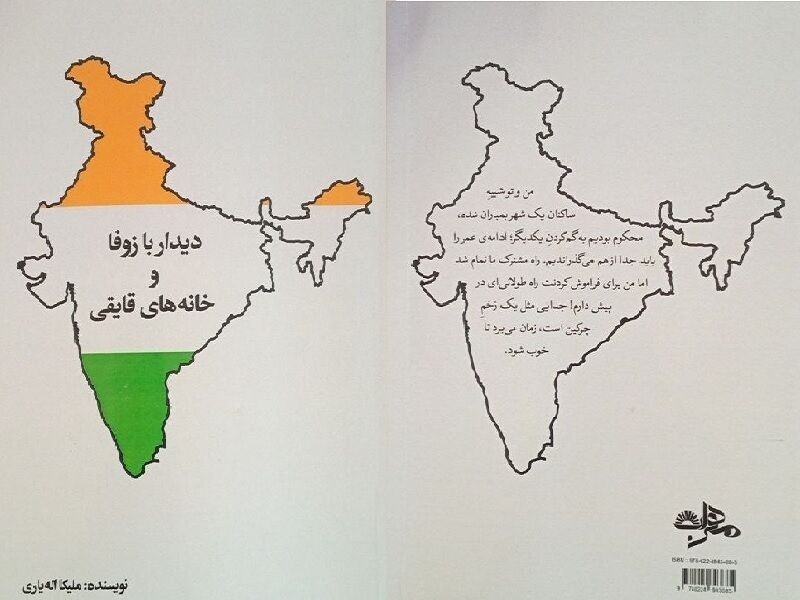 دیدار با زوفا
و
خانه‌های قایقی
نویسنده: ملیکا اله یاری
من و تو شبیهِ
ساکنان یک شهر بمباران شده،
محکوم بودیم به گم‌کردنِ یکدیگر؛ ادامه‌ی عمر را
باید جدا از هم می‌گذراندیم. راه مشترک ما تمام شد
اما من برای فراموش کردنت راه طولانی‌ای در
پیش دارم! جدایی مثل یک زخمِ
چرکین است، زمان می‌برد تا
خوب شود.
ISBN: